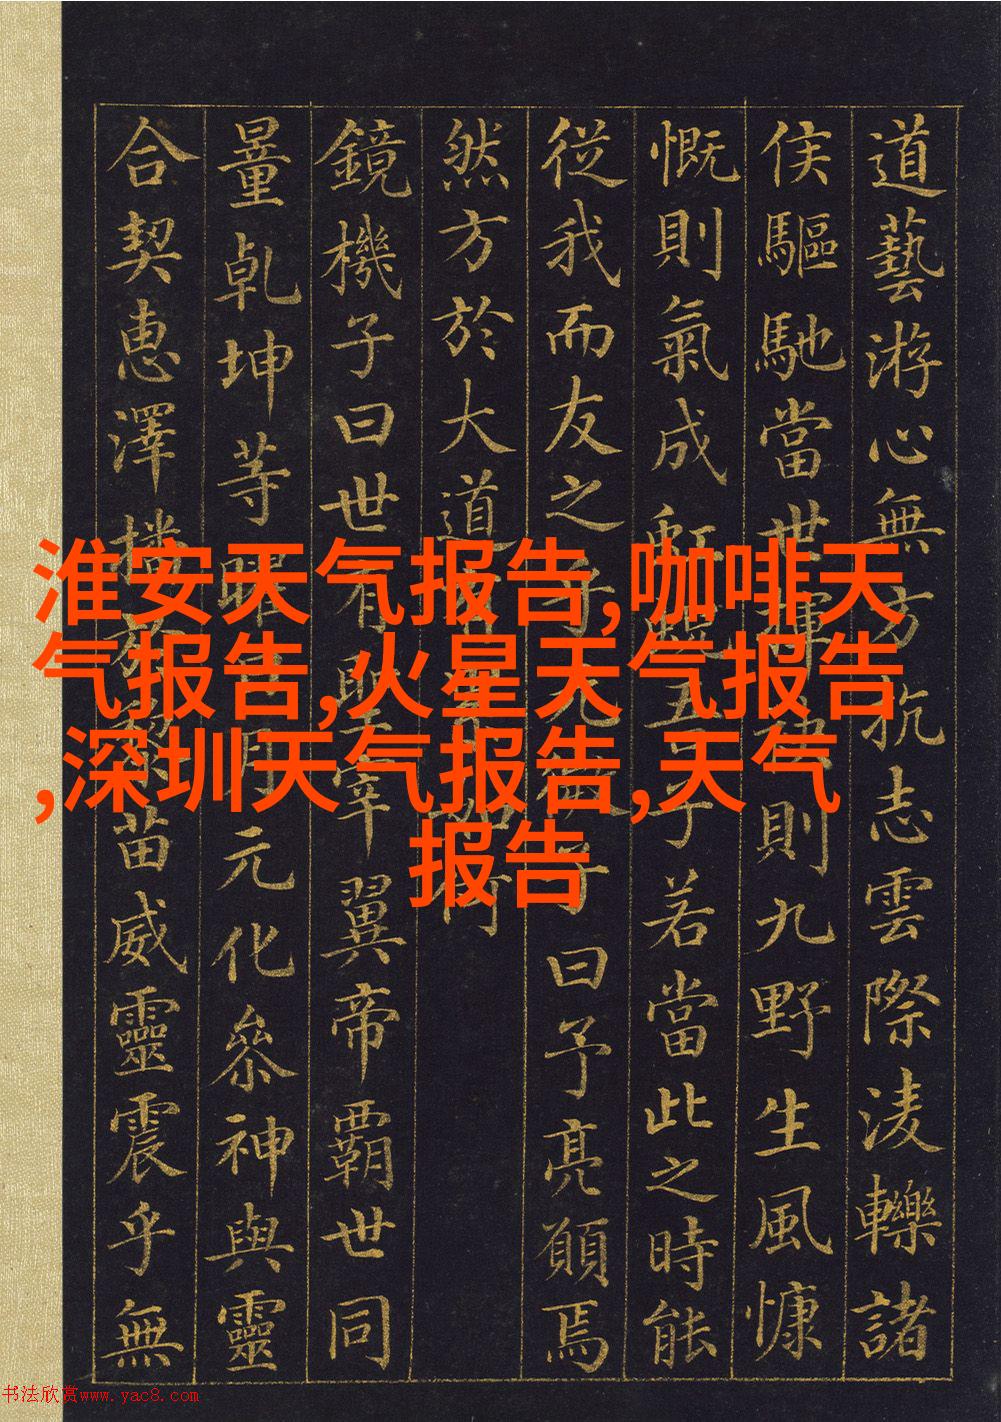 道藝游心無方抗志雲際淩轢諸
侯驅馳當世揮袂則九野生風慷
慨則氣成虹蜺吾子若當此之時能
從我而友之乎玄微子曰予亮願焉
然方於大道有累如何
鏡機子曰世有聖宰翼帝霸世同
量乾坤等曜日月元化參神與靈
合契惠澤播於黎苗威靈震乎無
淮安天气报告,咖啡天
气报告,火星天气报告
,深圳天气报告,天气
报告
书法欣赏www.yac8.com